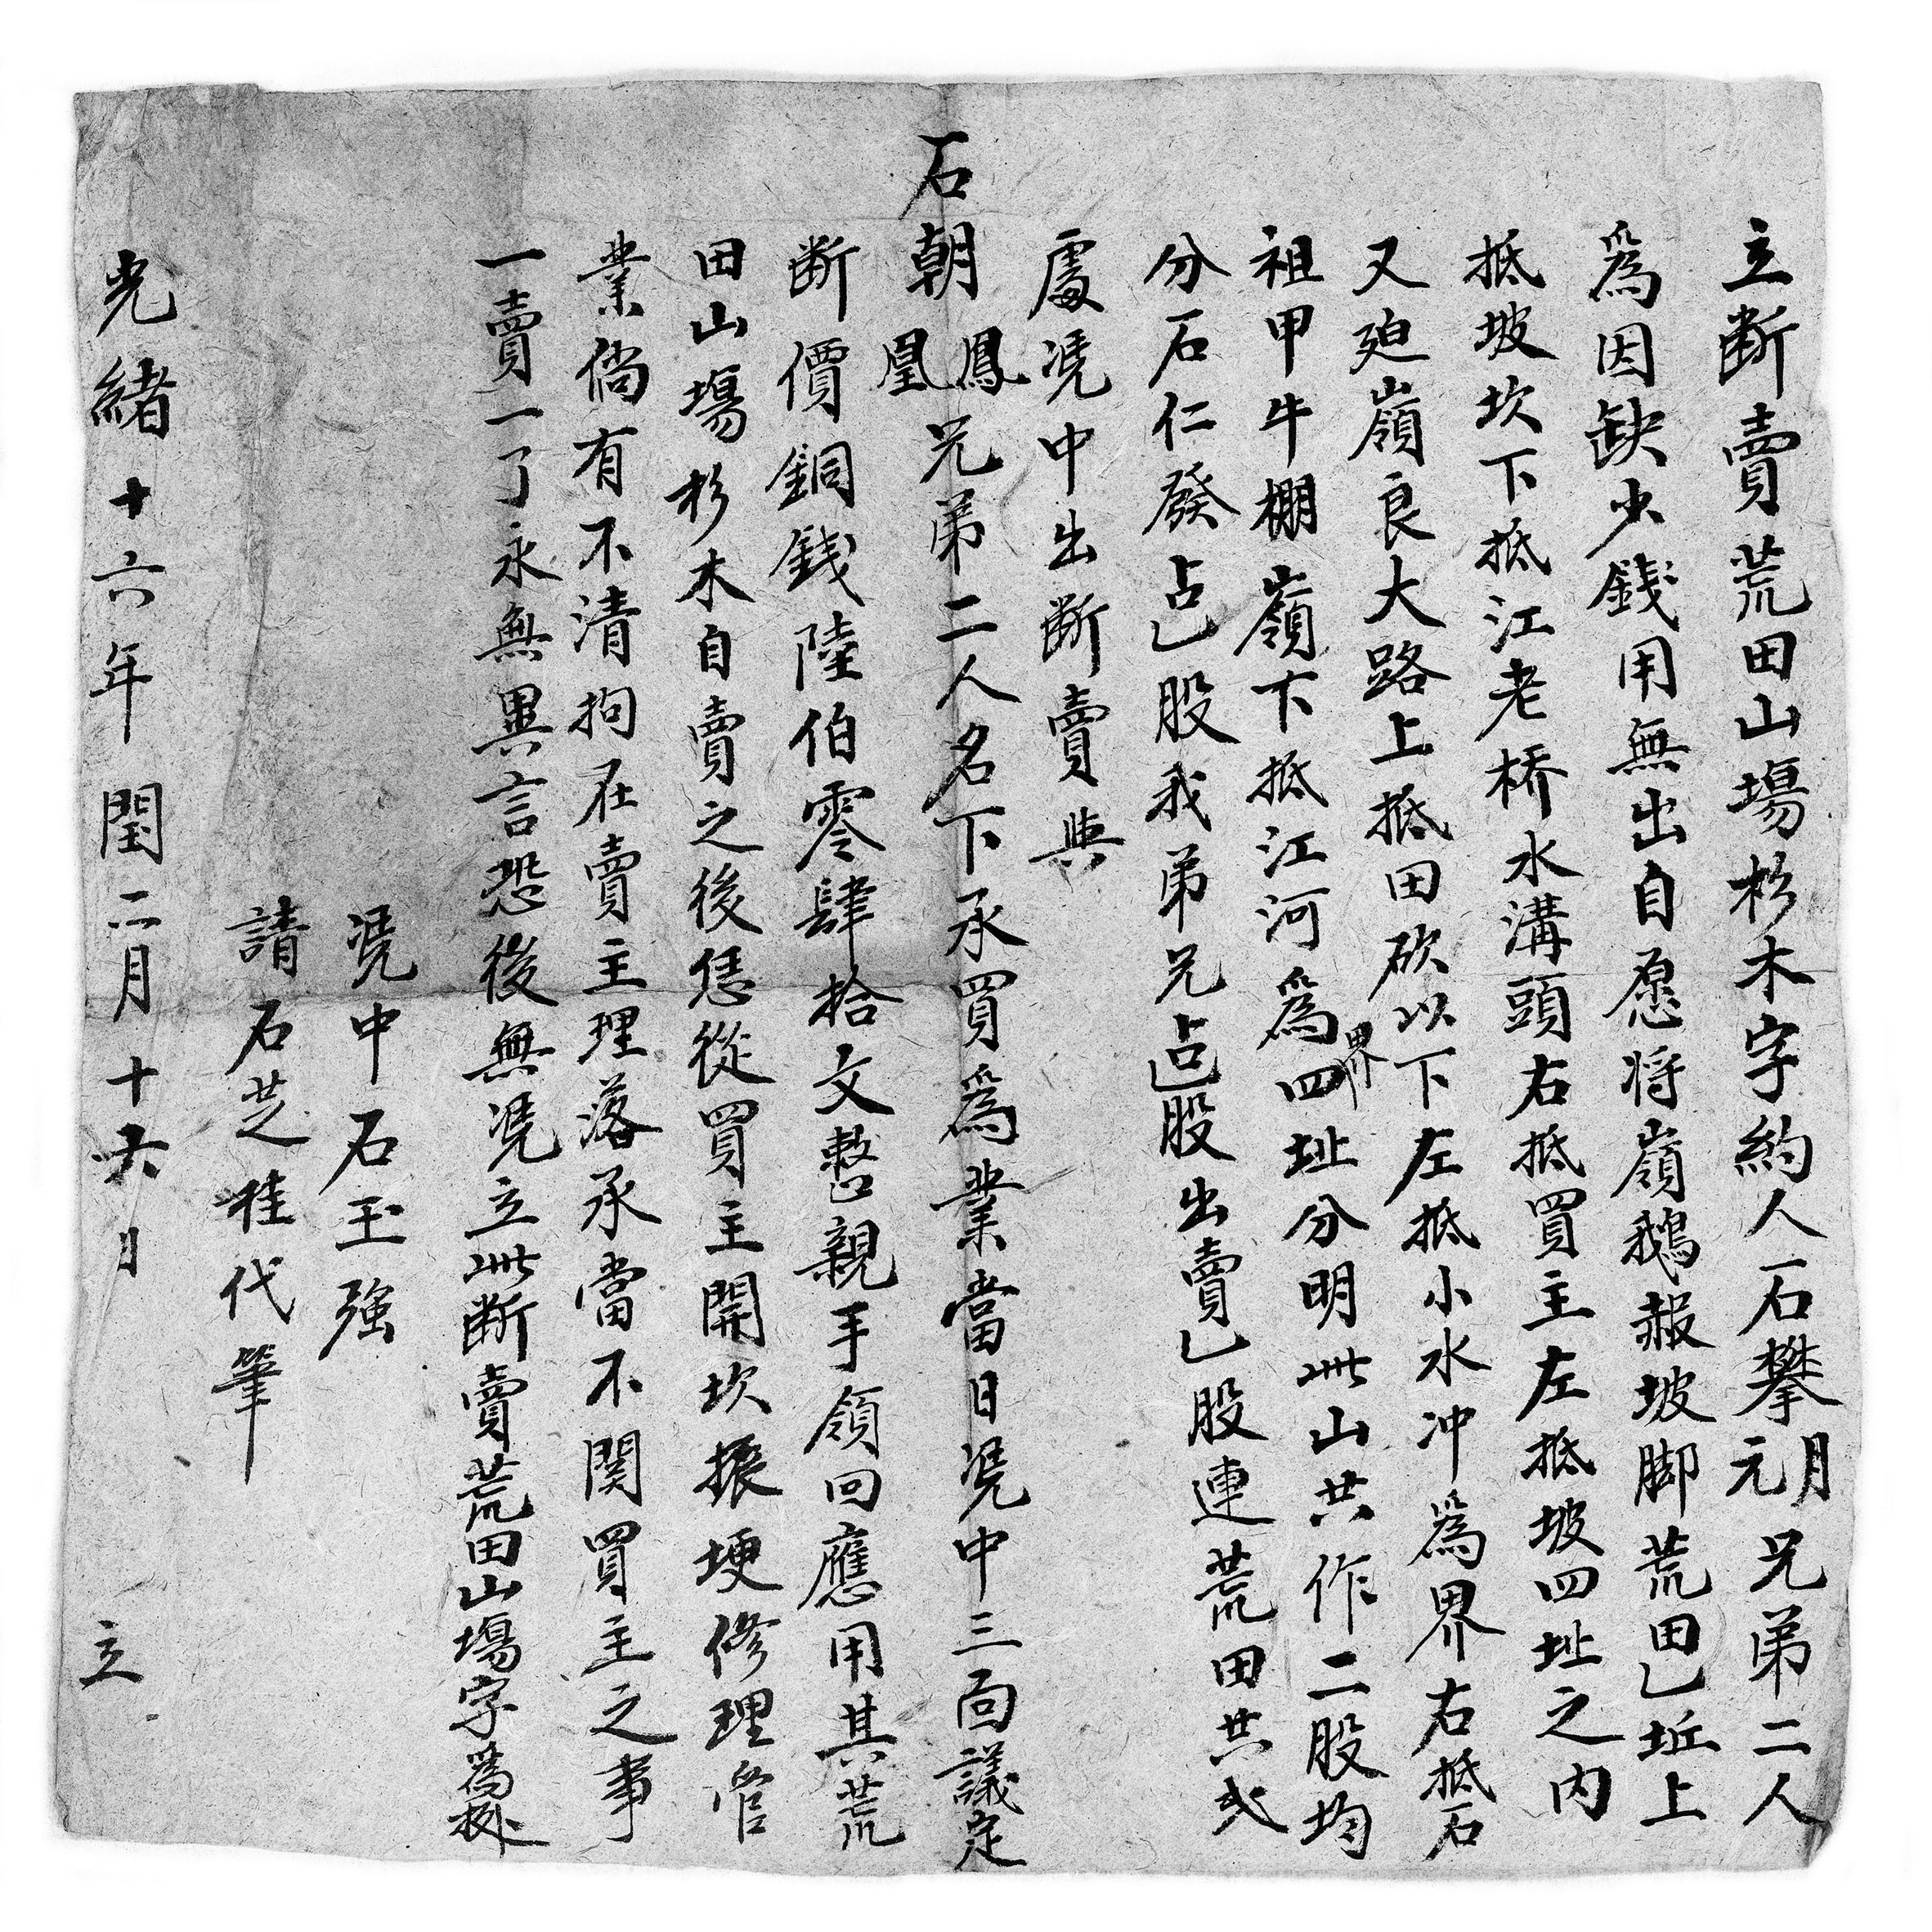 立断賣荒田山塲杉木字約人石攀元月兄弟二人
爲因缺少錢用無出自愿将嶺鵝赧坡脚荒田乚坵上
抵坡坎下抵江老桥水溝頭右抵買主左抵坡四址之内
又廹嶺良大路上抵田砍以下左抵小水冲爲界右抵石
祖甲牛棚嶺下抵江河爲界四址分明此山共作二股均
分石仁發占乚股我弟兄占乚股出賣乚股連荒田共弍
處凴中出断賣與
石朝鳳凰兄弟二人名下承買爲業當日凴中三面議定
断價銅錢陸伯零肆拾文整親手領回應用其荒
田山塲杉木自賣之後恁從買主開坎振埂修理管
業倘有不清拘在賣主理落承當不関買主之事
一賣一了永無異言恐後無凴立此断賣荒田山塲字爲㨿
凴中石玉强
請石芝桂代筆
光緒十六年閏二月十六日 立